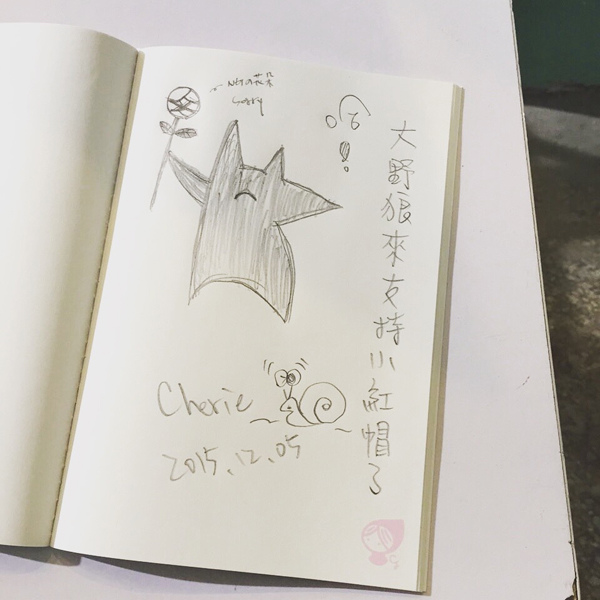 NET的花朵
Sorry
哈!!
大野狼來支持小紅帽了
Cherie
2015.12.05